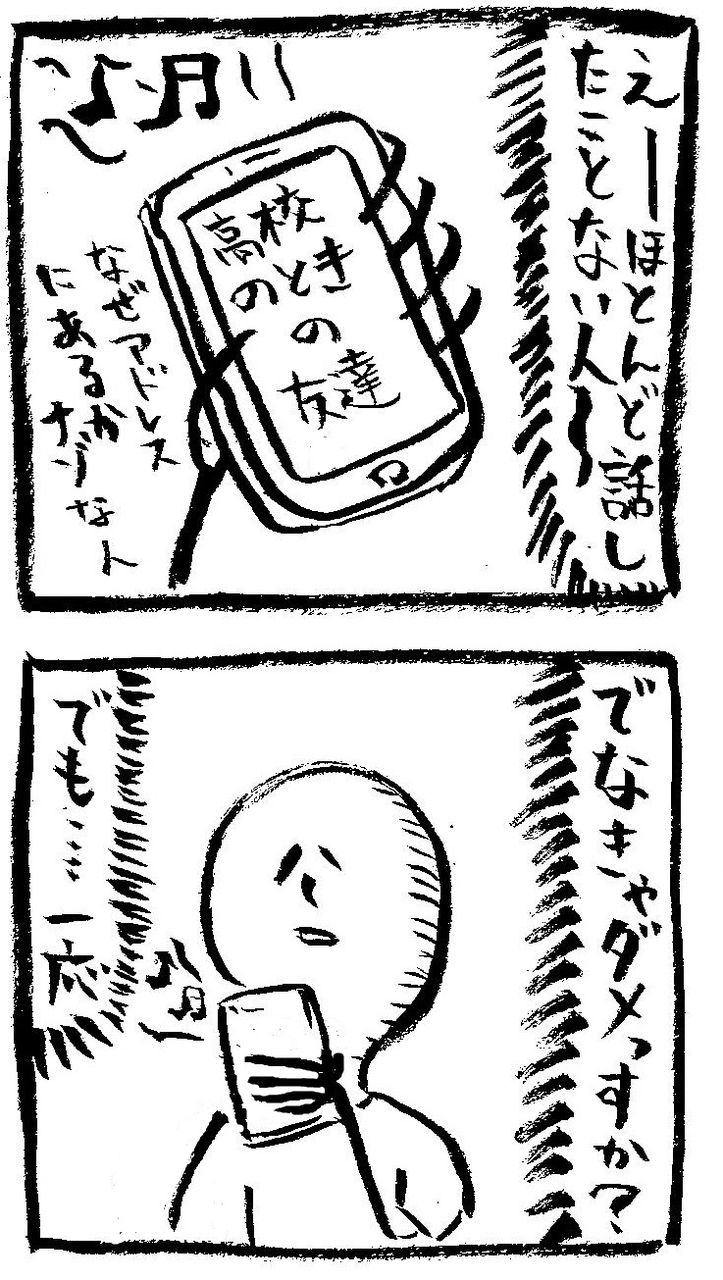 えーほとんど話し
たことない人〜
高校
のとき
の
友達
なぜアドレス
にあるか
ナゾな人
でなきゃダメっすか?
でも…一応